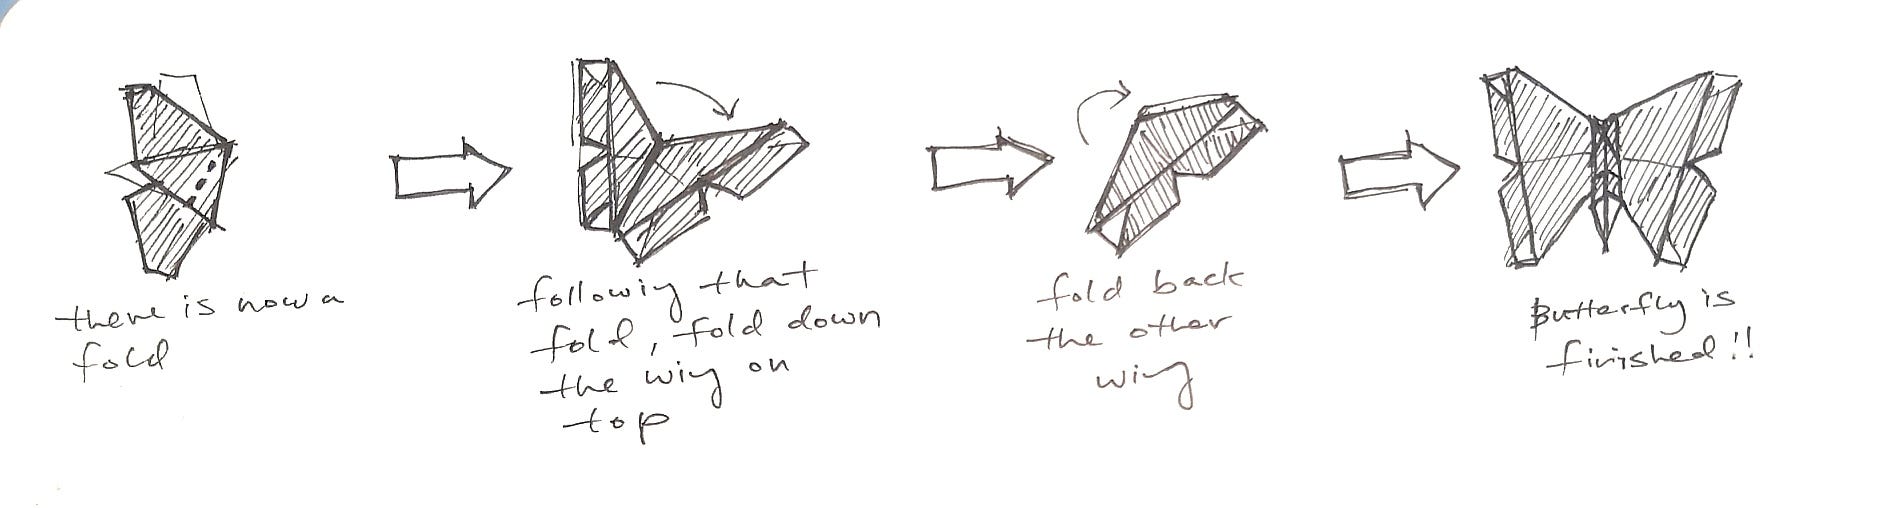 there is now a
fold
following that
fold, fold down
the wing on
top
fold back
the other
wing
Butterfly is
finished!!